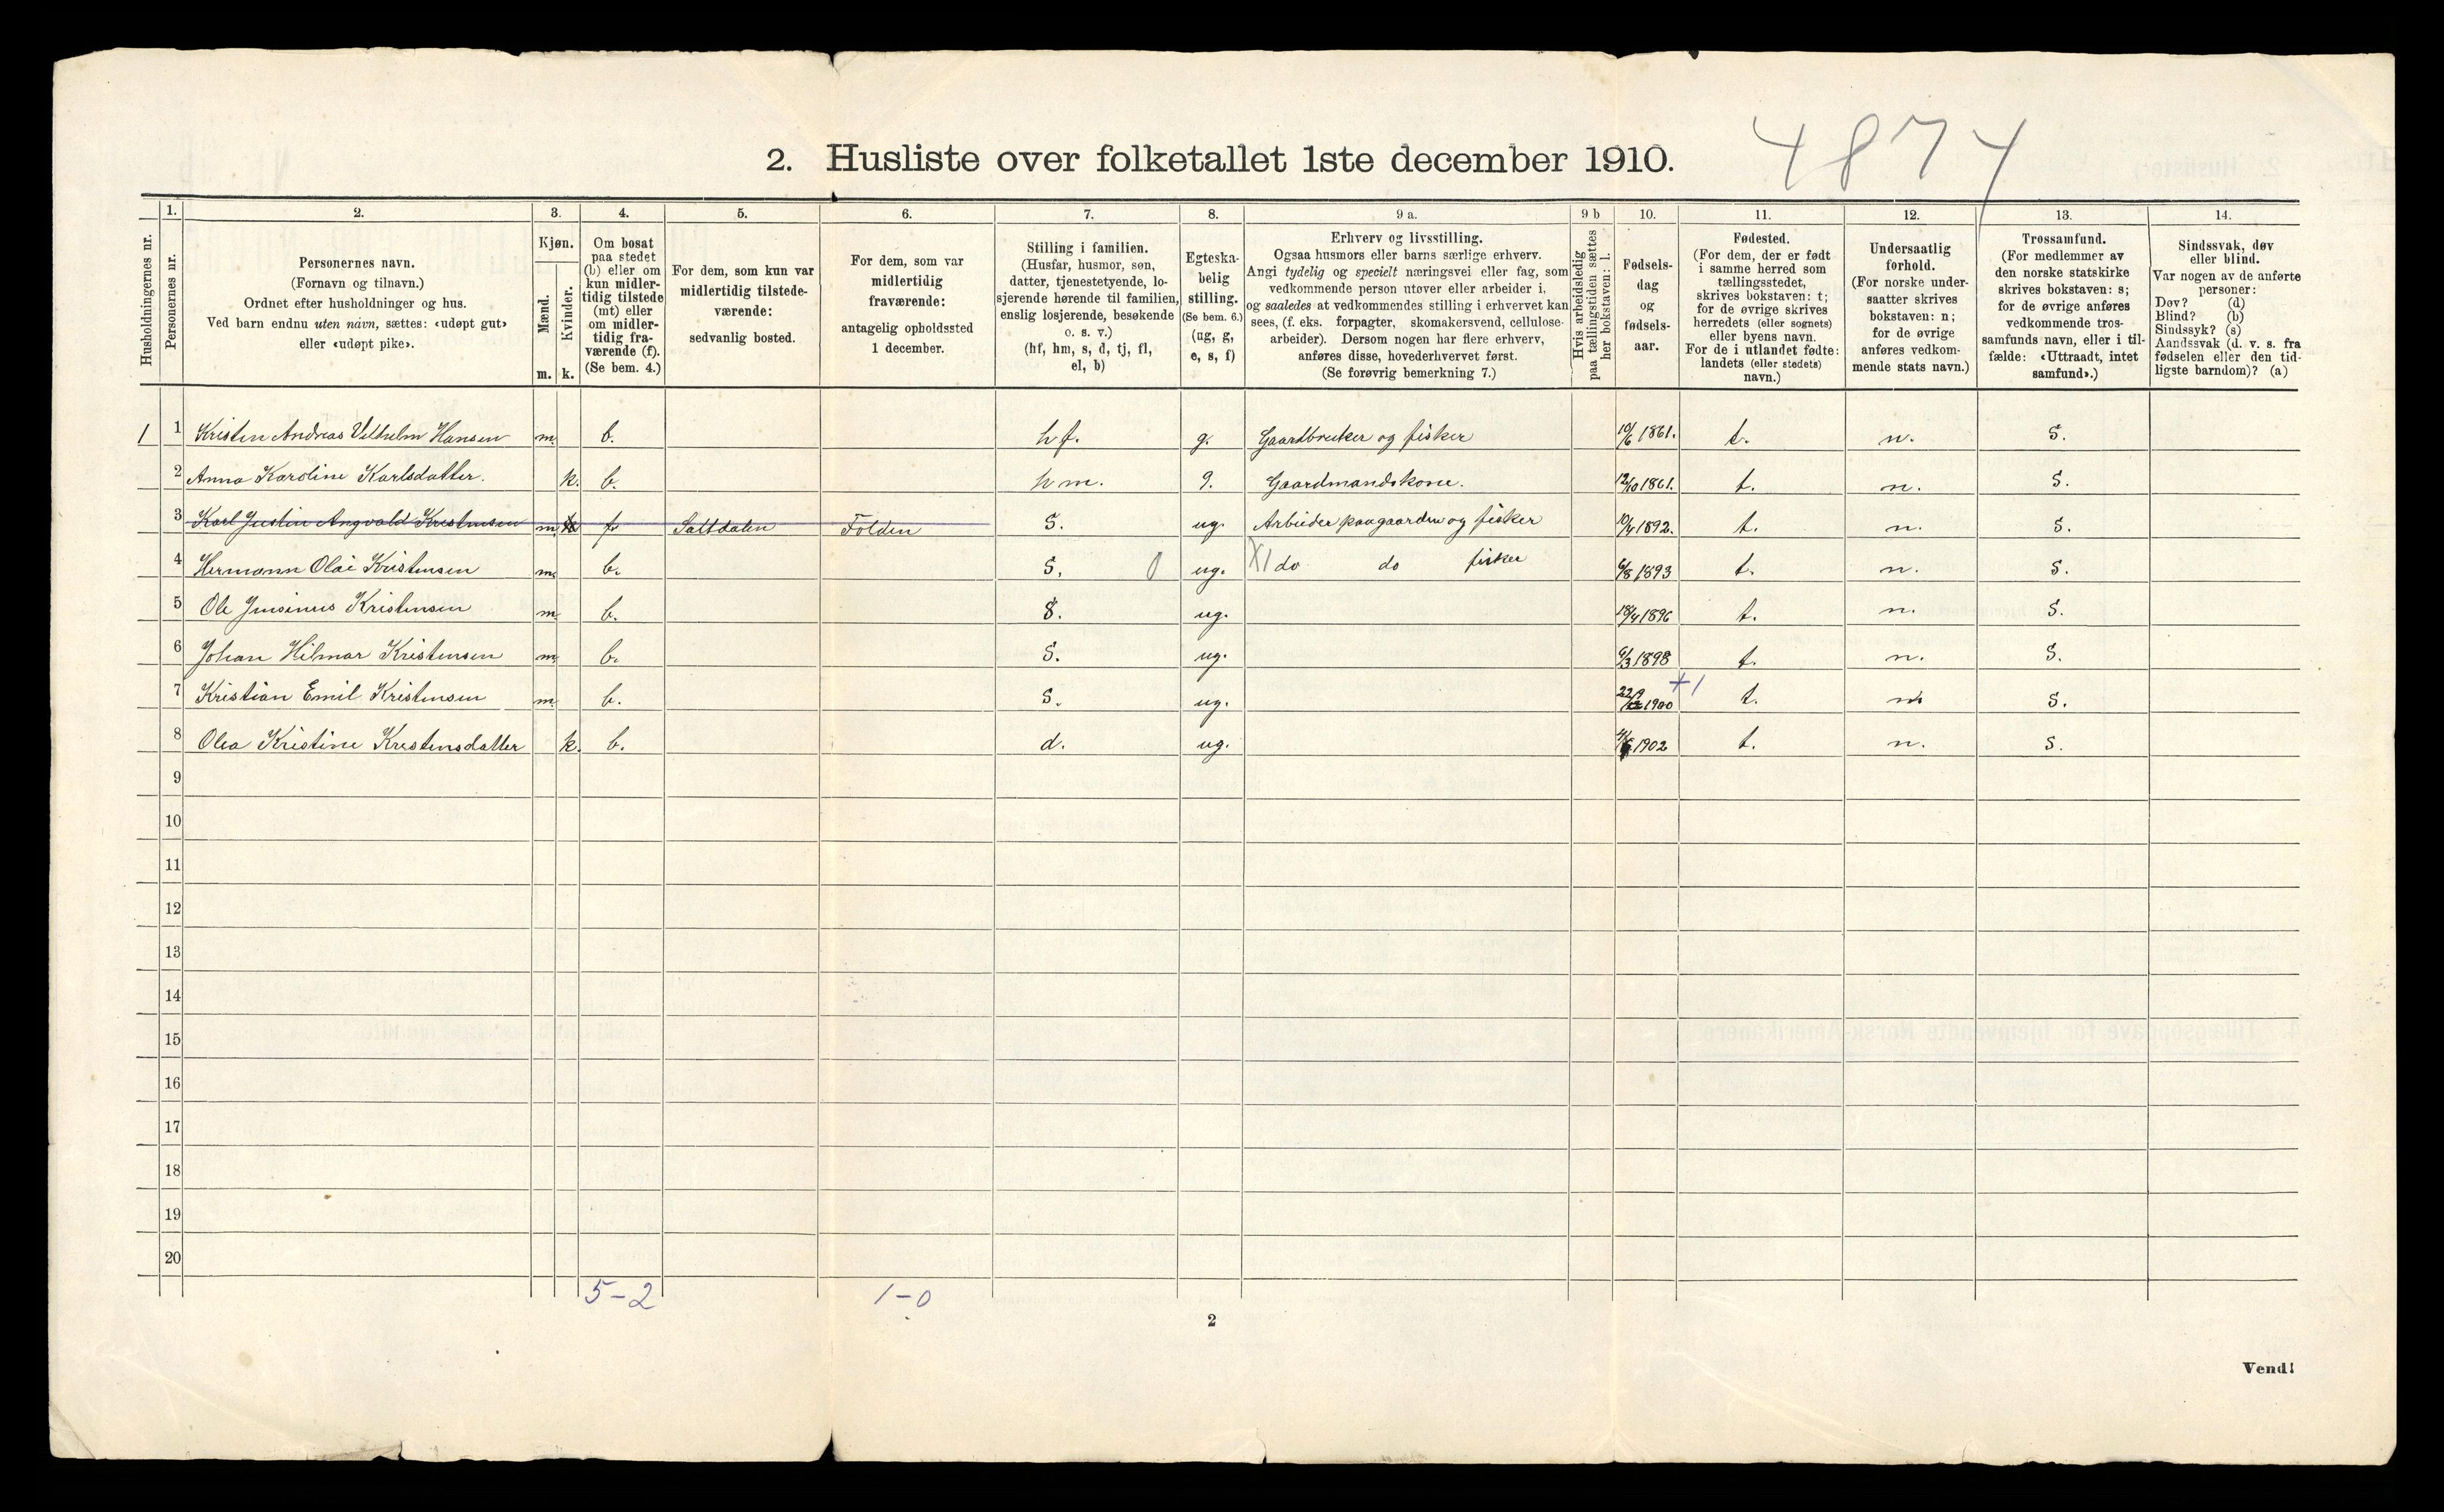 4874
2. Husliste over folketallet 1ste december 1910.
Husholdningernes nr.
1.
Personernes nr.
2.
Personernes navn.
(Fornavn og tilnavn.)
Ordnet efter husholdninger og hus.
Ved barn endnu uten navn, sættes: «udøpt gut»
eller «udøpt pike».
3.
Kjøn.
Mænd.
Kvinder.
m. k.
4.
Om bosat
paa stedet
(b) eller om
kun midler-
tidig tilstede
(mt) eller
om midler-
tidig fra-
værende (f).
(Se bem. 4.)
5.
For dem, som kun var
midlertidig tilstede-
værende:
sedvanlig bosted.
6.
For dem, som var
midlertidig
fraværende:
antagelig opholdssted
1 december.
7.
Stilling i familien.
(Husfar, husmor, søn,
datter, tjenestetyende, lo-
sjerende hørende til familien,
enslig losjerende, besøkende
o. s. v.)
(hf, hm, s, d, tj, fl,
el, b)
8.
Egteska-
belig
stilling.
(Se bem. 6.)
(ug, g,
e, s, f)
9 a.
Erhverv og livsstilling.
Ogsaa husmors eller barns særlige erhverv.
Angi tydelig og specielt næringsvei eller fag, som
vedkommende person utøver eller arbeider i,
og saaledes at vedkommendes stilling i erhvervet kan
sees, (f. eks. forpagter, skomakersvend, cellulose-
arbeider). Dersom nogen har flere erhverv,
anføres disse, hovederhvervet først.
(Se forøvrig bemerkning 7.)
9 b
Hvis arbeidsledig
paa tællingstiden sættes
her bokstaven: l.
10.
Fødsels-
dag
og
fødsels-
aar.
11.
Fødested.
(For dem, der er født
i samme herred som
tællingsstedet,
skrives bokstaven: t;
for de øvrige skrives
herredets (eller sognets)
eller byens navn.
For de i utlandet fødte:
landets (eller stedets)
navn.)
12.
Undersaatlig
forhold.
(For norske under-
saatter skrives
bokstaven: n;
for de øvrige
anføres vedkom-
mende stats navn.)
13.
Trossamfund.
(For medlemmer av
den norske statskirke
skrives bokstaven: s;
for de øvrige anføres
vedkommende tros-
samfunds navn, eller i til-
fælde: «Uttraadt, intet
samfund».)
14.
Sindssvak, døv
eller blind.
Var nogen av de anførte
personer:
Døv? (d)
Blind? (b)
Sindssyk? (s)
Aandssvak (d. v. s. fra
fødselen eller den tid-
ligste barndom)? (a)
1 1 Kristen Andreas Vilhelm Hansen m. b. hf. g. Gaardbruker og fisker 10/6 1861. t. n. S.
2 Anna Karoline Karlsdatter. k. b. hm. g. Gaardmandskone. 12/10 1861. t. n. S.
3 Karl Justin Angvald Kristensen m. f Saltdalen Folden S. ug. Arbeider paa gaarden og fisker 10/4 1892. t. n. S.
4 Hermann Olai Kristensen m. b. S. 0 ug. X1 do do fisker 6/8 1893 t. n. S.
5 Ole Jensinus Kristensen m. b. S. ug. 18/4 1896 t. n. S.
6 Johan Hilmar Kristensen m. b. S. ug. 9/3 1898 t. n. S.
7 Kristian Emil Kristensen m. b. S. ug. 22/9 1900 +1 t. n. S.
8 Olea Kristine Kristensdatter k. b. d. ug. 4/6 1902 t. n. S.
9
10
11
12
13
14
15
16
17
18
19
20
5-2 1-0
2
Vend!